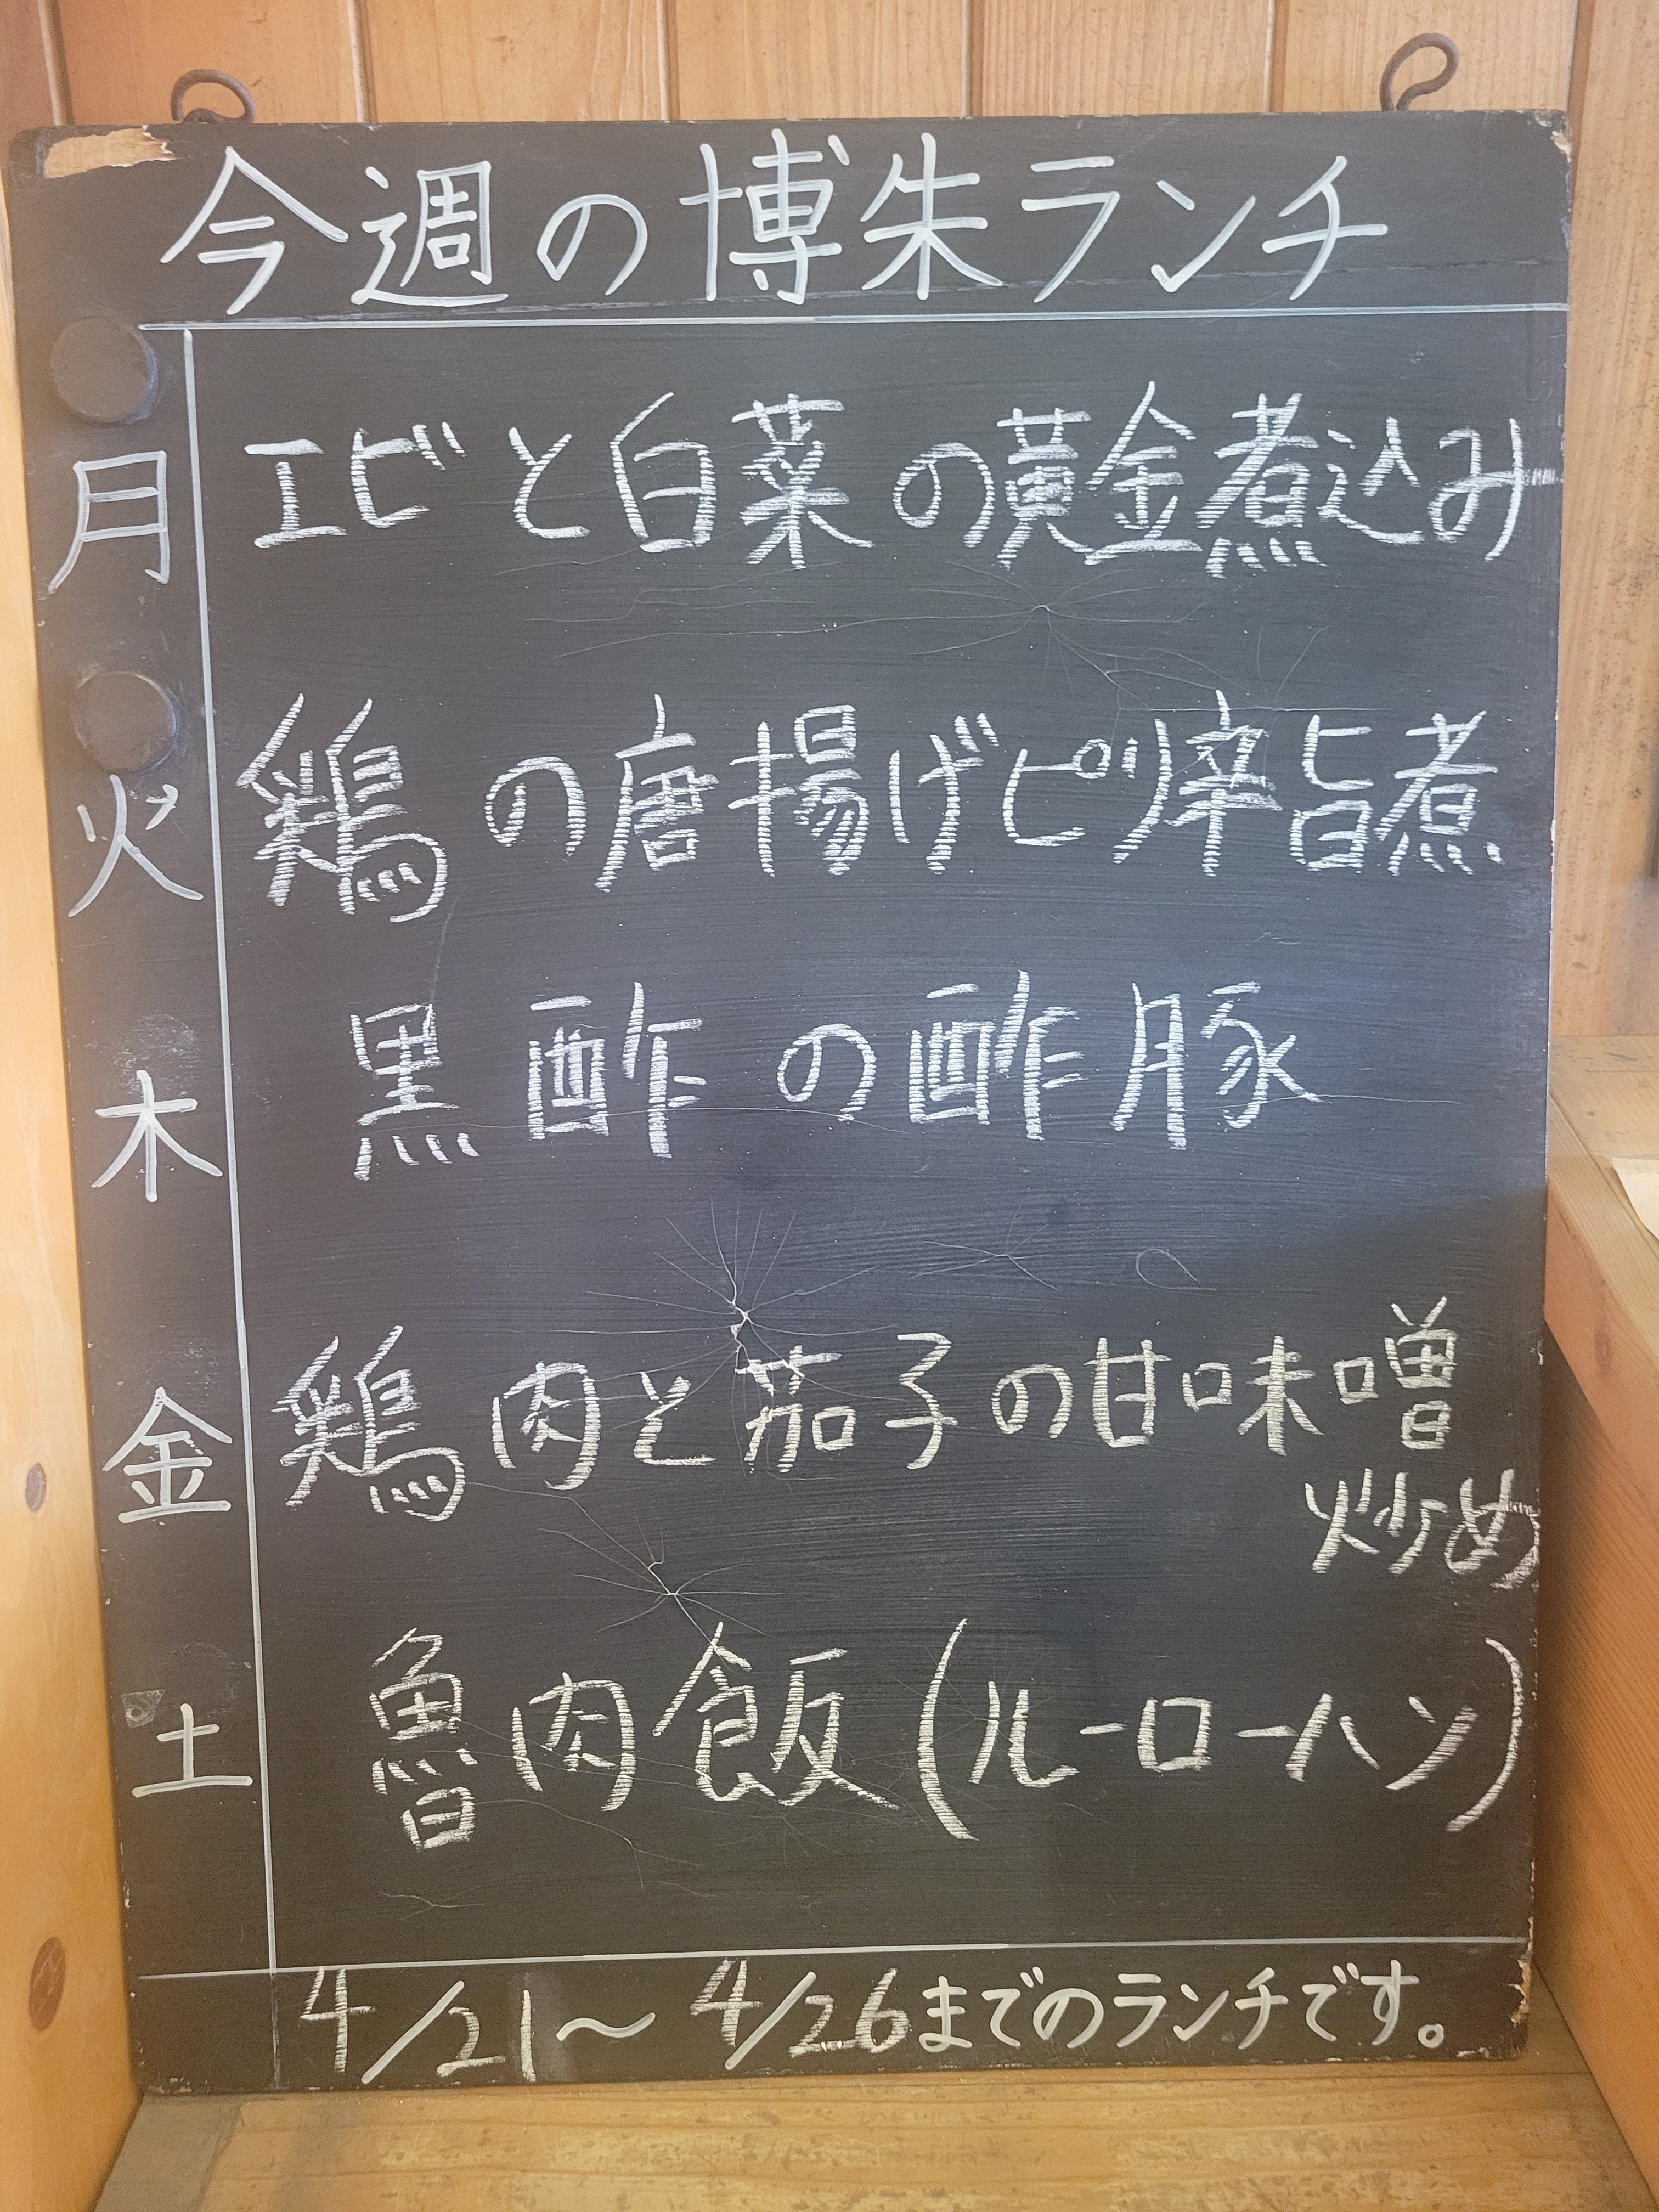 今週の博朱ランチ
月 エビと白菜の黄金煮込み
火 鶏の唐揚げピリ辛旨煮
木 黒酢の酢豚
金 鶏肉と茄子の甘味噌
炒め
土 魯肉飯(ルーローハン)
4/21〜4/26までのランチです。